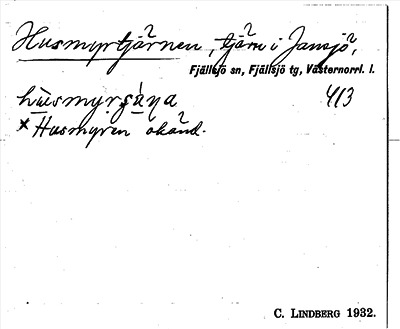 Husmyrtjärnen, tjärn i Jansjö,
Fjällsjö sn, Fjällsjö tg, Västernorrl. l.
413
× Husmyren okänd.
C. LINDBERG 1932.